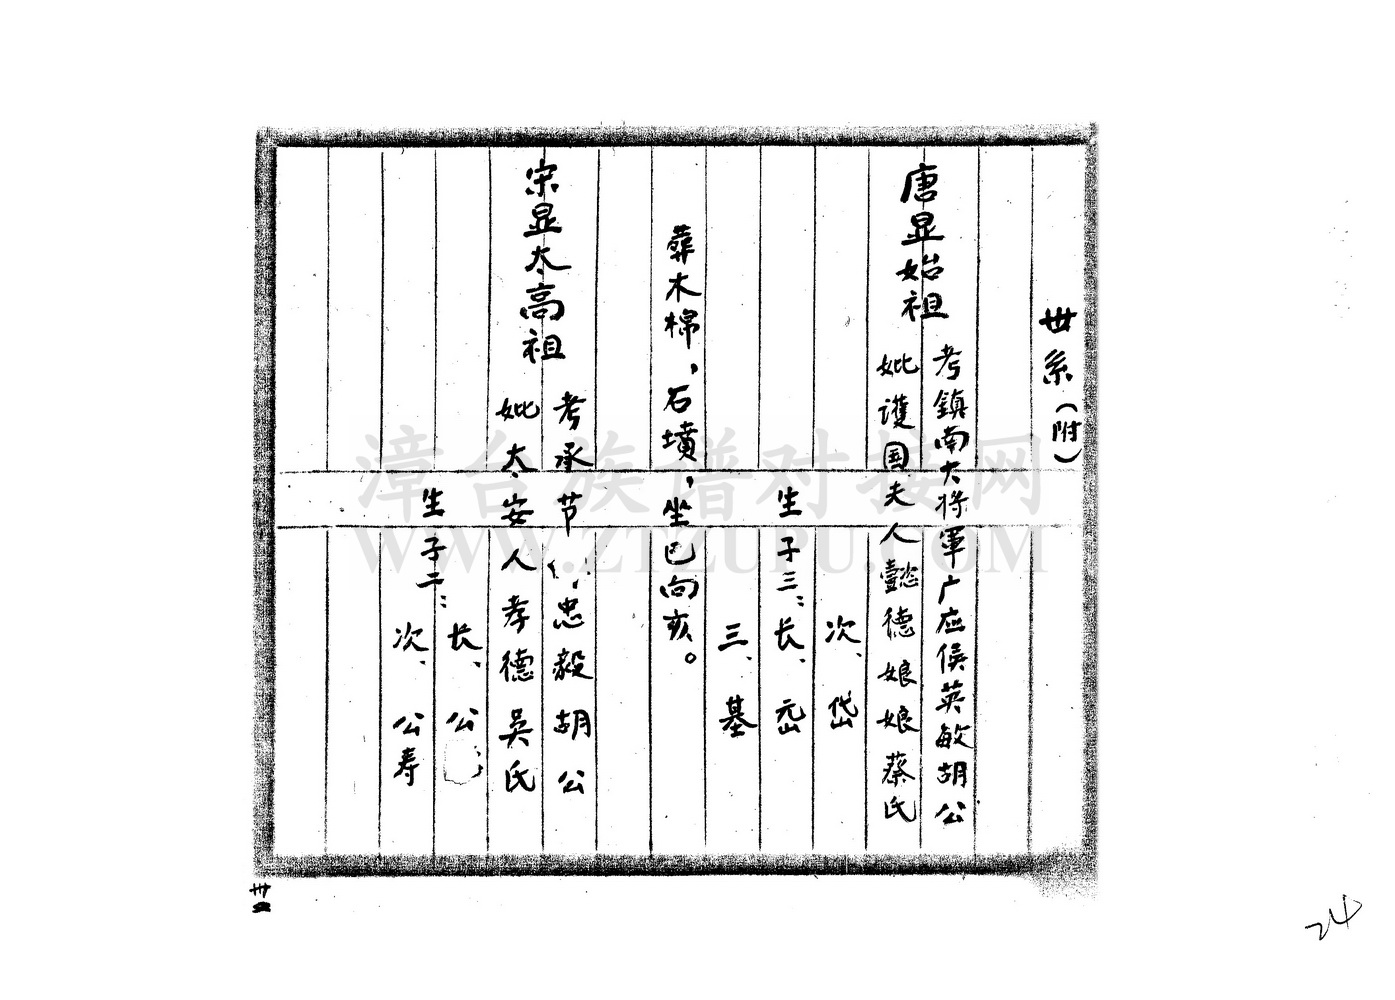 世系（附）
唐显始祖
考鎮南大将軍广应侯英敏胡公
妣護国夫人懿德娘娘蔡氏
生子三：长、
次、岱
三、基
葬木棉，石墳，坐巳向亥。
宋显太高祖
考承节忠毅胡公
妣太安人孝德吴氏
生子二：长、公
次、公寿
漳台族谱对接网
WWW.ZTZUPU.COM
24